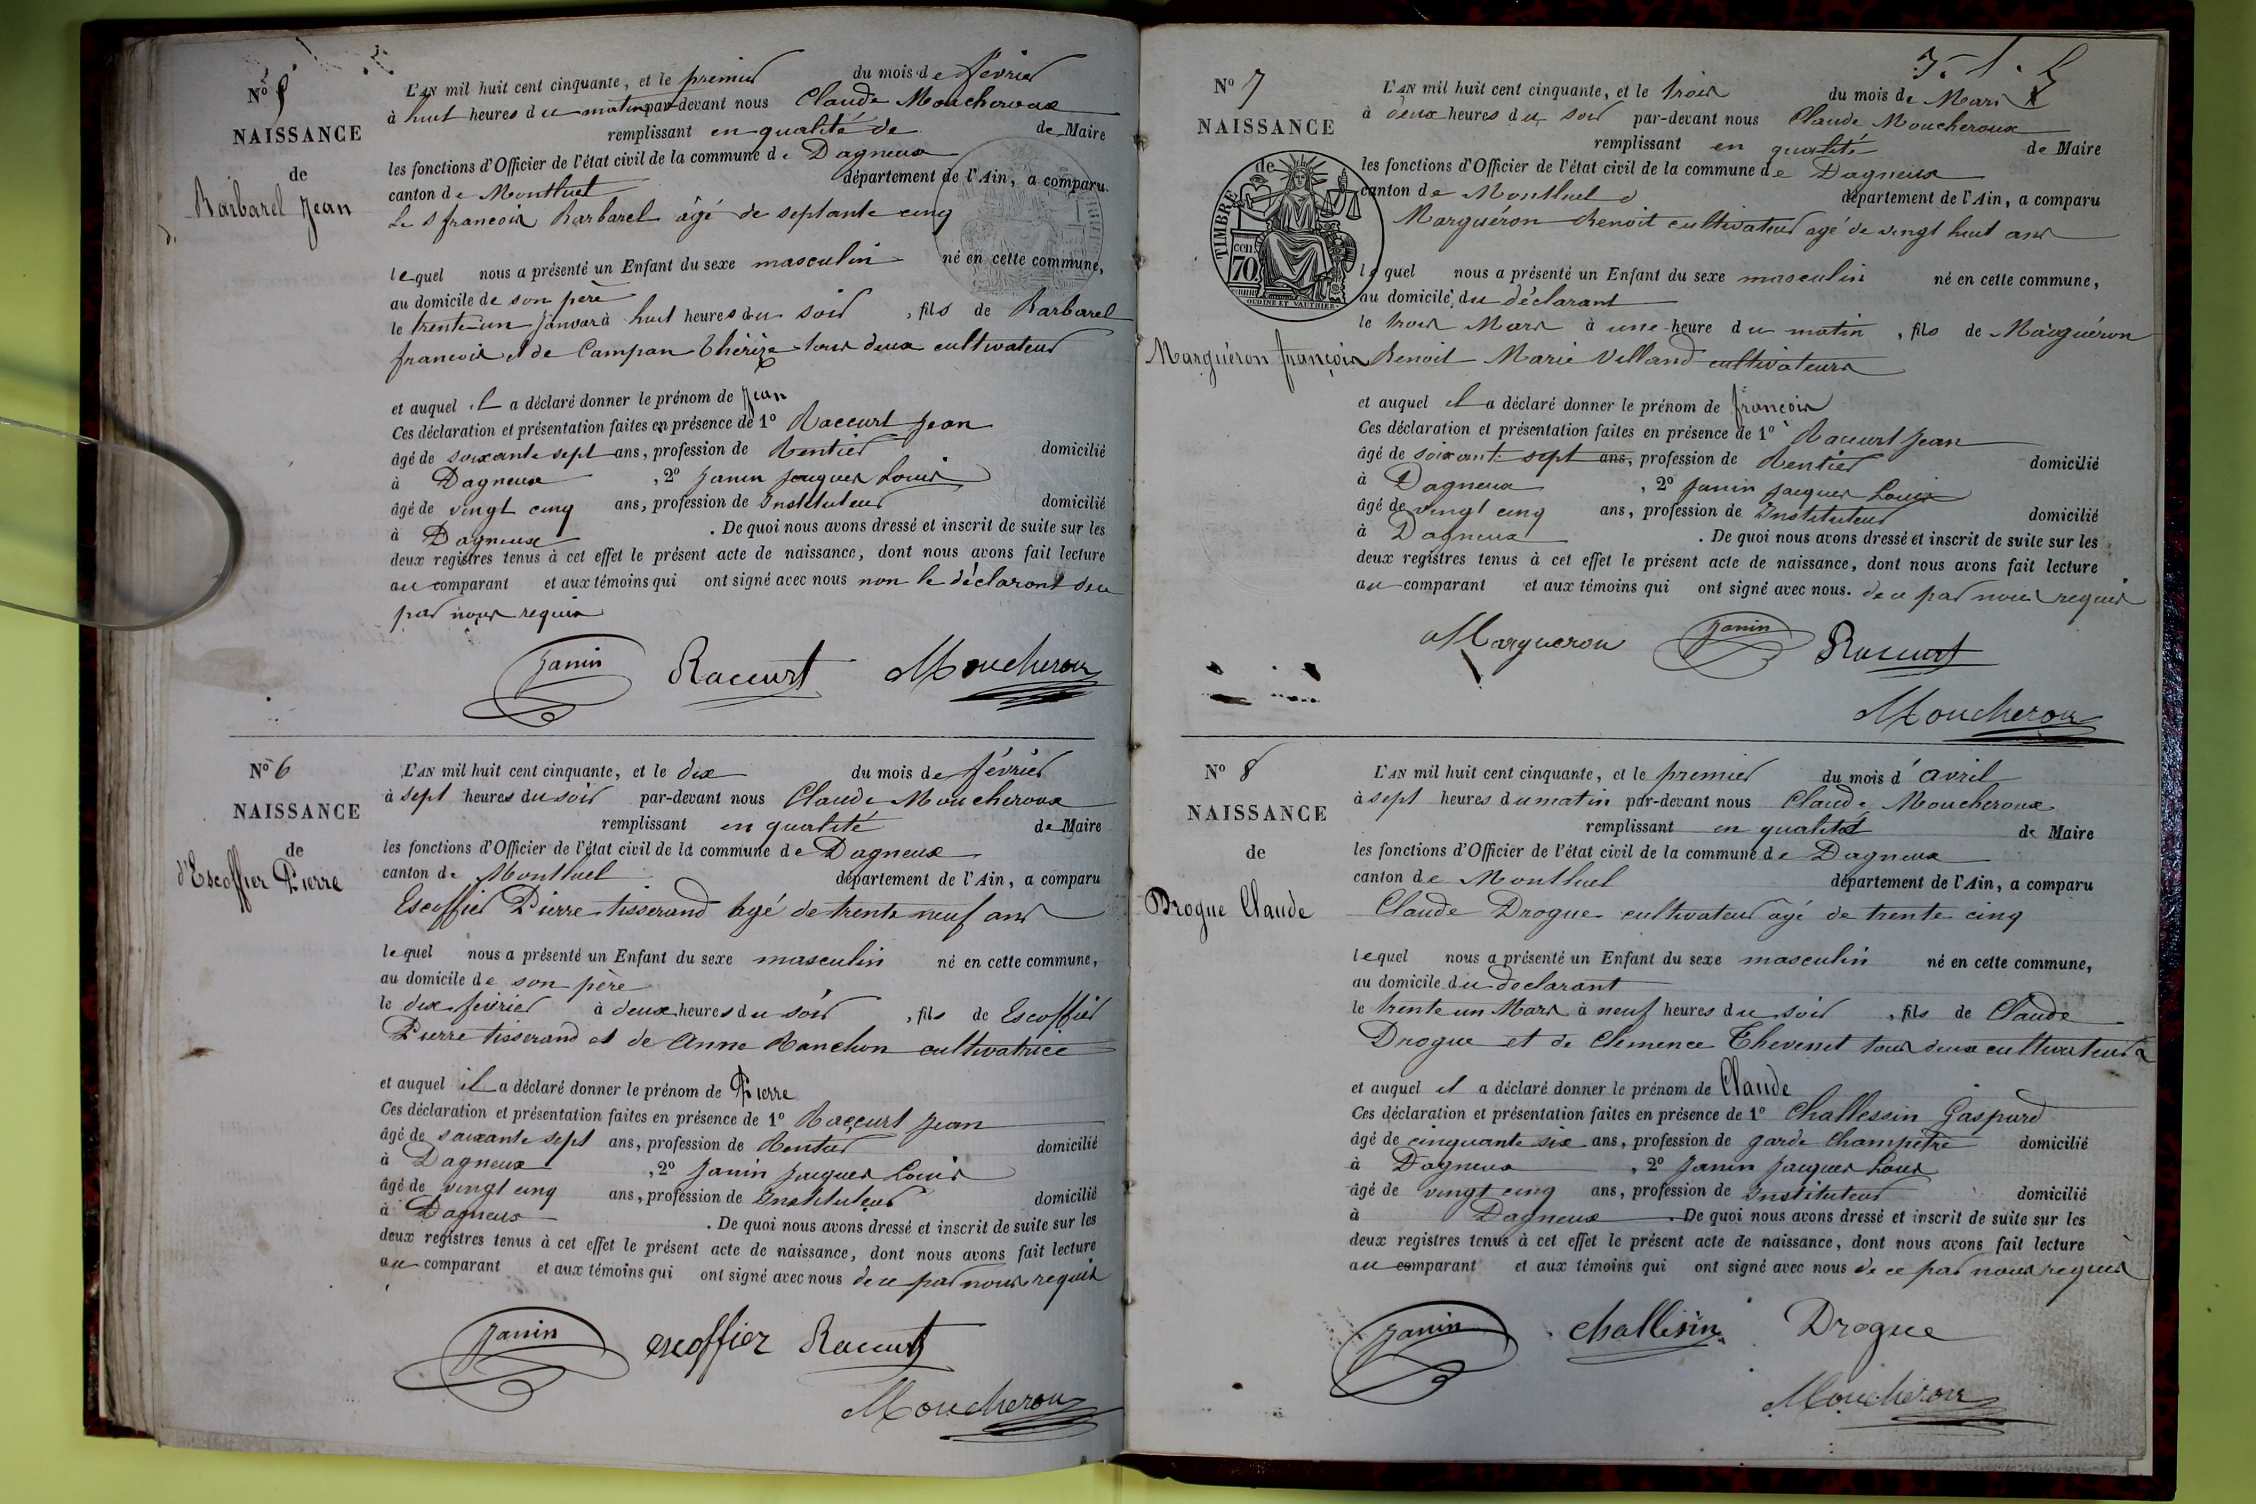 Nº 5
NAISSANCE
de
Barbarel Jean
L'AN mil huit cent cinquante, et le premier du mois de février
à huit heures du matin par-devant nous Claude Moucheroux
remplissant en qualité de de Maire
les fonctions d'Officier de l'état civil de la commune de Dagneux
canton de Montluel département de l'Ain, a comparu
Le S françois Barbarel âgé de septante cinq
lequel nous a présenté un Enfant du sexe masculin né en cette commune,
au domicile de son père
le trente un Janvier à huit heures du soir, fils de Barbarel
françois et de Campan Thérèze tous deux cultivateurs
et auquel il a déclaré donner le prénom de Jean
Ces déclaration et présentation faites en présence de 1º Raccurt Jean
âgé de soixante sept ans, profession de Rentier domicilié
à Dagneux, 2º Janin Jacques Louis
âgé de vingt cinq ans, profession de Instituteur domicilié
à Dagneux. De quoi nous avons dressé et inscrit de suite sur les
deux registres tenus à cet effet le présent acte de naissance, dont nous avons fait lecture
au comparant et aux témoins qui ont signé avec nous non le déclarant de ce
par nous requis
Janin Raccurt Moucheroux
Nº 6
NAISSANCE
de
d'Escoffier Pierre
L'AN mil huit cent cinquante, et le dix du mois de février
à sept heures du soir par-devant nous Claude Moucheroux
remplissant en qualité de Maire
les fonctions d'Officier de l'état civil de la commune de Dagneux
canton de Montluel département de l'Ain, a comparu
Escoffier Pierre tisserand âgé de trente neuf ans
lequel nous a présenté un Enfant du sexe masculin né en cette commune,
au domicile de son père
le dix février à deux heures du soir, fils de Escoffier
Pierre tisserand et de Anne Ranchon cultivatrice
et auquel il a déclaré donner le prénom de Pierre
Ces déclaration et présentation faites en présence de 1º Raccurt Jean
âgé de soixante sept ans, profession de Rentier domicilié
à Dagneux, 2º Janin Jacques Louis
âgé de vingt cinq ans, profession de Instituteur domicilié
à Dagneux. De quoi nous avons dressé et inscrit de suite sur les
deux registres tenus à cet effet le présent acte de naissance, dont nous avons fait lecture
au comparant et aux témoins qui ont signé avec nous de ce par nous requis
Janin escoffier Raccurt
Moucheroux
Nº 7
NAISSANCE
de
TIMBRE
cen
70
OUDINE ET VAUTHIER
Marguéron françois
L'AN mil huit cent cinquante, et le trois du mois de Mars
à deux heures du soir par-devant nous Claude Moucheroux
remplissant en qualité de Maire
les fonctions d'Officier de l'état civil de la commune de Dagneux
canton de Montluel département de l'Ain, a comparu
Marguéron Benoit cultivateur agé de vingt huit ans
lequel nous a présenté un Enfant du sexe masculin né en cette commune,
au domicile du déclarant
le trois Mars à une heure du matin, fils de Marguéron
Benoit Marie Villand cultivateurs
et auquel il a déclaré donner le prénom de françois
Ces déclaration et présentation faites en présence de 1º Raccurt Jean
âgé de soixante sept ans, profession de Rentier domicilié
à Dagneux, 2º Janin Jacques Louis
âgé de vingt cinq ans, profession de Instituteur domicilié
à Dagneux. De quoi nous avons dressé et inscrit de suite sur les
deux registres tenus à cet effet le présent acte de naissance, dont nous avons fait lecture
au comparant et aux témoins qui ont signé avec nous. de ce par nous requis
Margueron Janin Raccurt
Moucheroux
Nº 8
NAISSANCE
de
Drogue Claude
L'AN mil huit cent cinquante, et le premier du mois d'avril
à sept heures du matin par-devant nous Claude Moucheroux
remplissant en qualité de Maire
les fonctions d'Officier de l'état civil de la commune de Dagneux
canton de Montluel département de l'Ain, a comparu
Claude Drogue cultivateur âgé de trente cinq
lequel nous a présenté un Enfant du sexe masculin né en cette commune,
au domicile du declarant
le trente un Mars à neuf heures du soir, fils de Claude
Drogue et de Clemence Thevenet tous deux cultivateurs
et auquel il a déclaré donner le prénom de Claude
Ces déclaration et présentation faites en présence de 1º Challessin Gaspard
âgé de cinquante six ans, profession de garde champetre domicilié
à Dagneux, 2º Janin Jacques Louis
âgé de vingt cinq ans, profession de Instituteur domicilié
à Dagneux. De quoi nous avons dressé et inscrit de suite sur les
deux registres tenus à cet effet le présent acte de naissance, dont nous avons fait lecture
au comparant et aux témoins qui ont signé avec nous de ce par nous requis
Janin challesin Drogue
Moucheroux